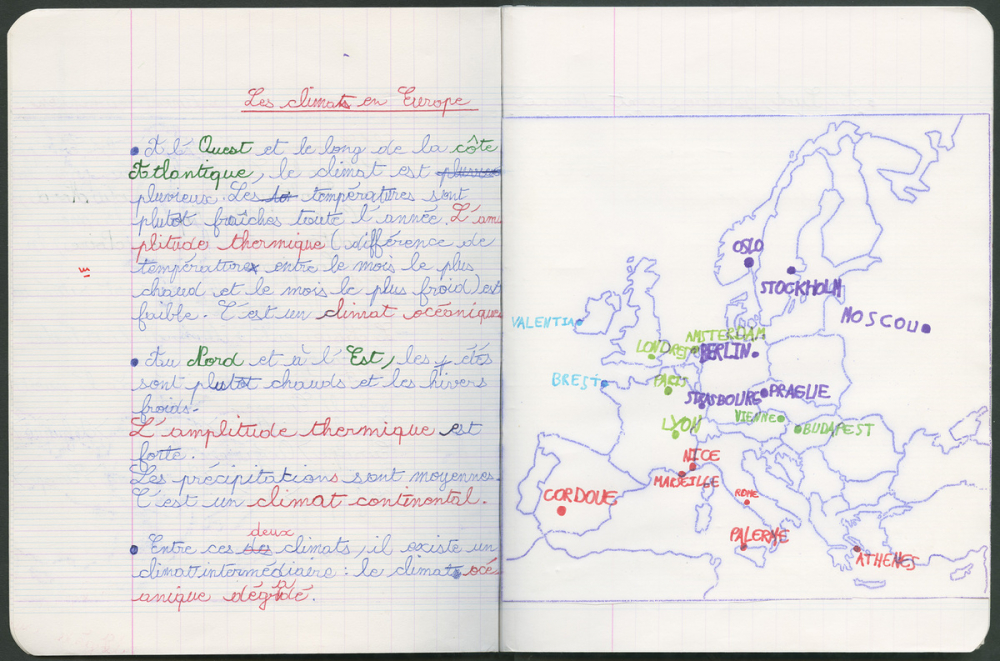 Les climats en Europe
• A l'Ouest et le long de la côte
Atlantique, le climat est pluvieux
pluvieux. Les températures sont
plutôt fraîches toute l'année. L'am
plitude thermique (différence de
températures entre le mois le plus
chaud et le mois le plus froid) est
faible. C'est un climat océanique
• Au Nord et à l'Est, les étés
sont plutôt chauds et les hivers
froids.
L'amplitude thermique est
forte.
Les précipitations sont moyennes.
C'est un climat continental.
deux
• Entre ces climats, il existe un
climat intermédiaire : le climat océ
anique dégradé.
OSLO
STOCKHOLM
MOSCOU
VALENTIA
AMSTERDAM
LONDRES
BERLIN
BREST
PARIS
STRASBOURG
PRAGUE
VIENNE
LYON
BUDAPEST
NICE
MARSEILLE
CORDOUE
ROME
PALERME
ATHENES